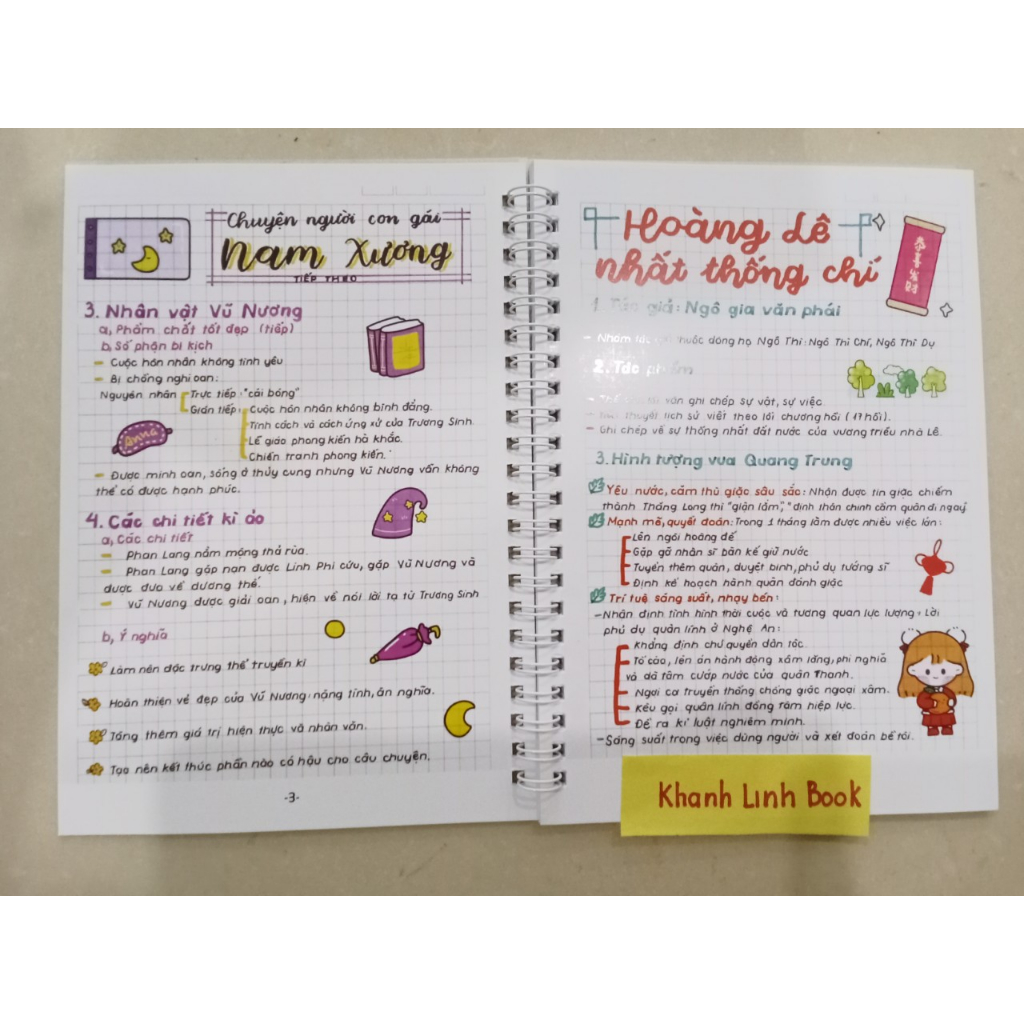 Chuyện người con gái
Nam Xương
TIẾP THEO
3. Nhân vật Vũ Nương
a, Phẩm chất tốt đẹp (tiếp)
b, Số phận bi kịch
- Cuộc hôn nhân không tình yêu
- Bị chồng nghi oan:
Nguyên nhân Trực tiếp: "cái bóng"
Gián tiếp: Cuộc hôn nhân không bình đẳng.
Tính cách và cách ứng xử của Trương Sinh.
Lễ giáo phong kiến hà khắc.
Chiến tranh phong kiến.
Anna
- Được minh oan, sống ở thủy cung nhưng Vũ Nương vẫn không
thể có được hạnh phúc.
4. Các chi tiết kì ảo
a, Các chi tiết
- Phan Lang nằm mộng thả rùa.
- Phan Lang gặp nạn được Linh Phi cứu, gặp Vũ Nương và
được đưa về dương thế.
- Vũ Nương được giải oan, hiện về nói lời tạ từ Trương Sinh
b, Ý nghĩa
Làm nên đặc trưng thể truyền kì
Hoàn thiện vẻ đẹp của Vũ Nương: nặng tình, ân nghĩa.
Tăng thêm giá trị hiện thực và nhân văn.
Tạo nên kết thúc phần nào có hậu cho câu chuyện.
-3-
Hoàng Lê
nhất thống chí
恭喜发财
1. Tác giả: Ngô gia văn phái
- Nhóm tác thuộc dòng họ Ngô Thì: Ngô Thì Chí, Ngô Thì Du
2. Tác phẩm
văn ghi chép sự vật, sự việc.
thuyết lịch sử viết theo lối chương hồi (17 hồi).
- Ghi chép về sự thống nhất đất nước của vương triều nhà Lê.
3. Hình tượng vua Quang Trung
Yêu nước, căm thù giặc sâu sắc: Nhận được tin giặc chiếm
thành Thăng Long thì "giận lắm", "định thân chinh cầm quân đi ngay"
Mạnh mẽ, quyết đoán: Trong 1 tháng làm được nhiều việc lớn:
Lên ngôi hoàng đế
Gặp gỡ nhân sĩ bàn kế giữ nước
Tuyển thêm quân, duyệt binh, phủ dụ tướng sĩ
Định kế hoạch hành quân đánh giặc
Trí tuệ sáng suất, nhạy bén:
- Nhận định tình hình thời cuộc và tương quan lực lượng, Lời
phủ dụ quân lính ở Nghệ An:
Khẳng định chủ quyền dân tộc.
Tố cáo, lên án hành động xâm lăng, phi nghĩa
và dã tâm cướp nước của quân Thanh.
Ngợi ca truyền thống chống giặc ngoại xâm.
Kêu gọi quân lính đồng tâm hiệp lực.
Đề ra kỉ luật nghiêm minh.
- Sáng suất trong việc dùng người và xét đoán bề tôi.
Khanh Linh Book